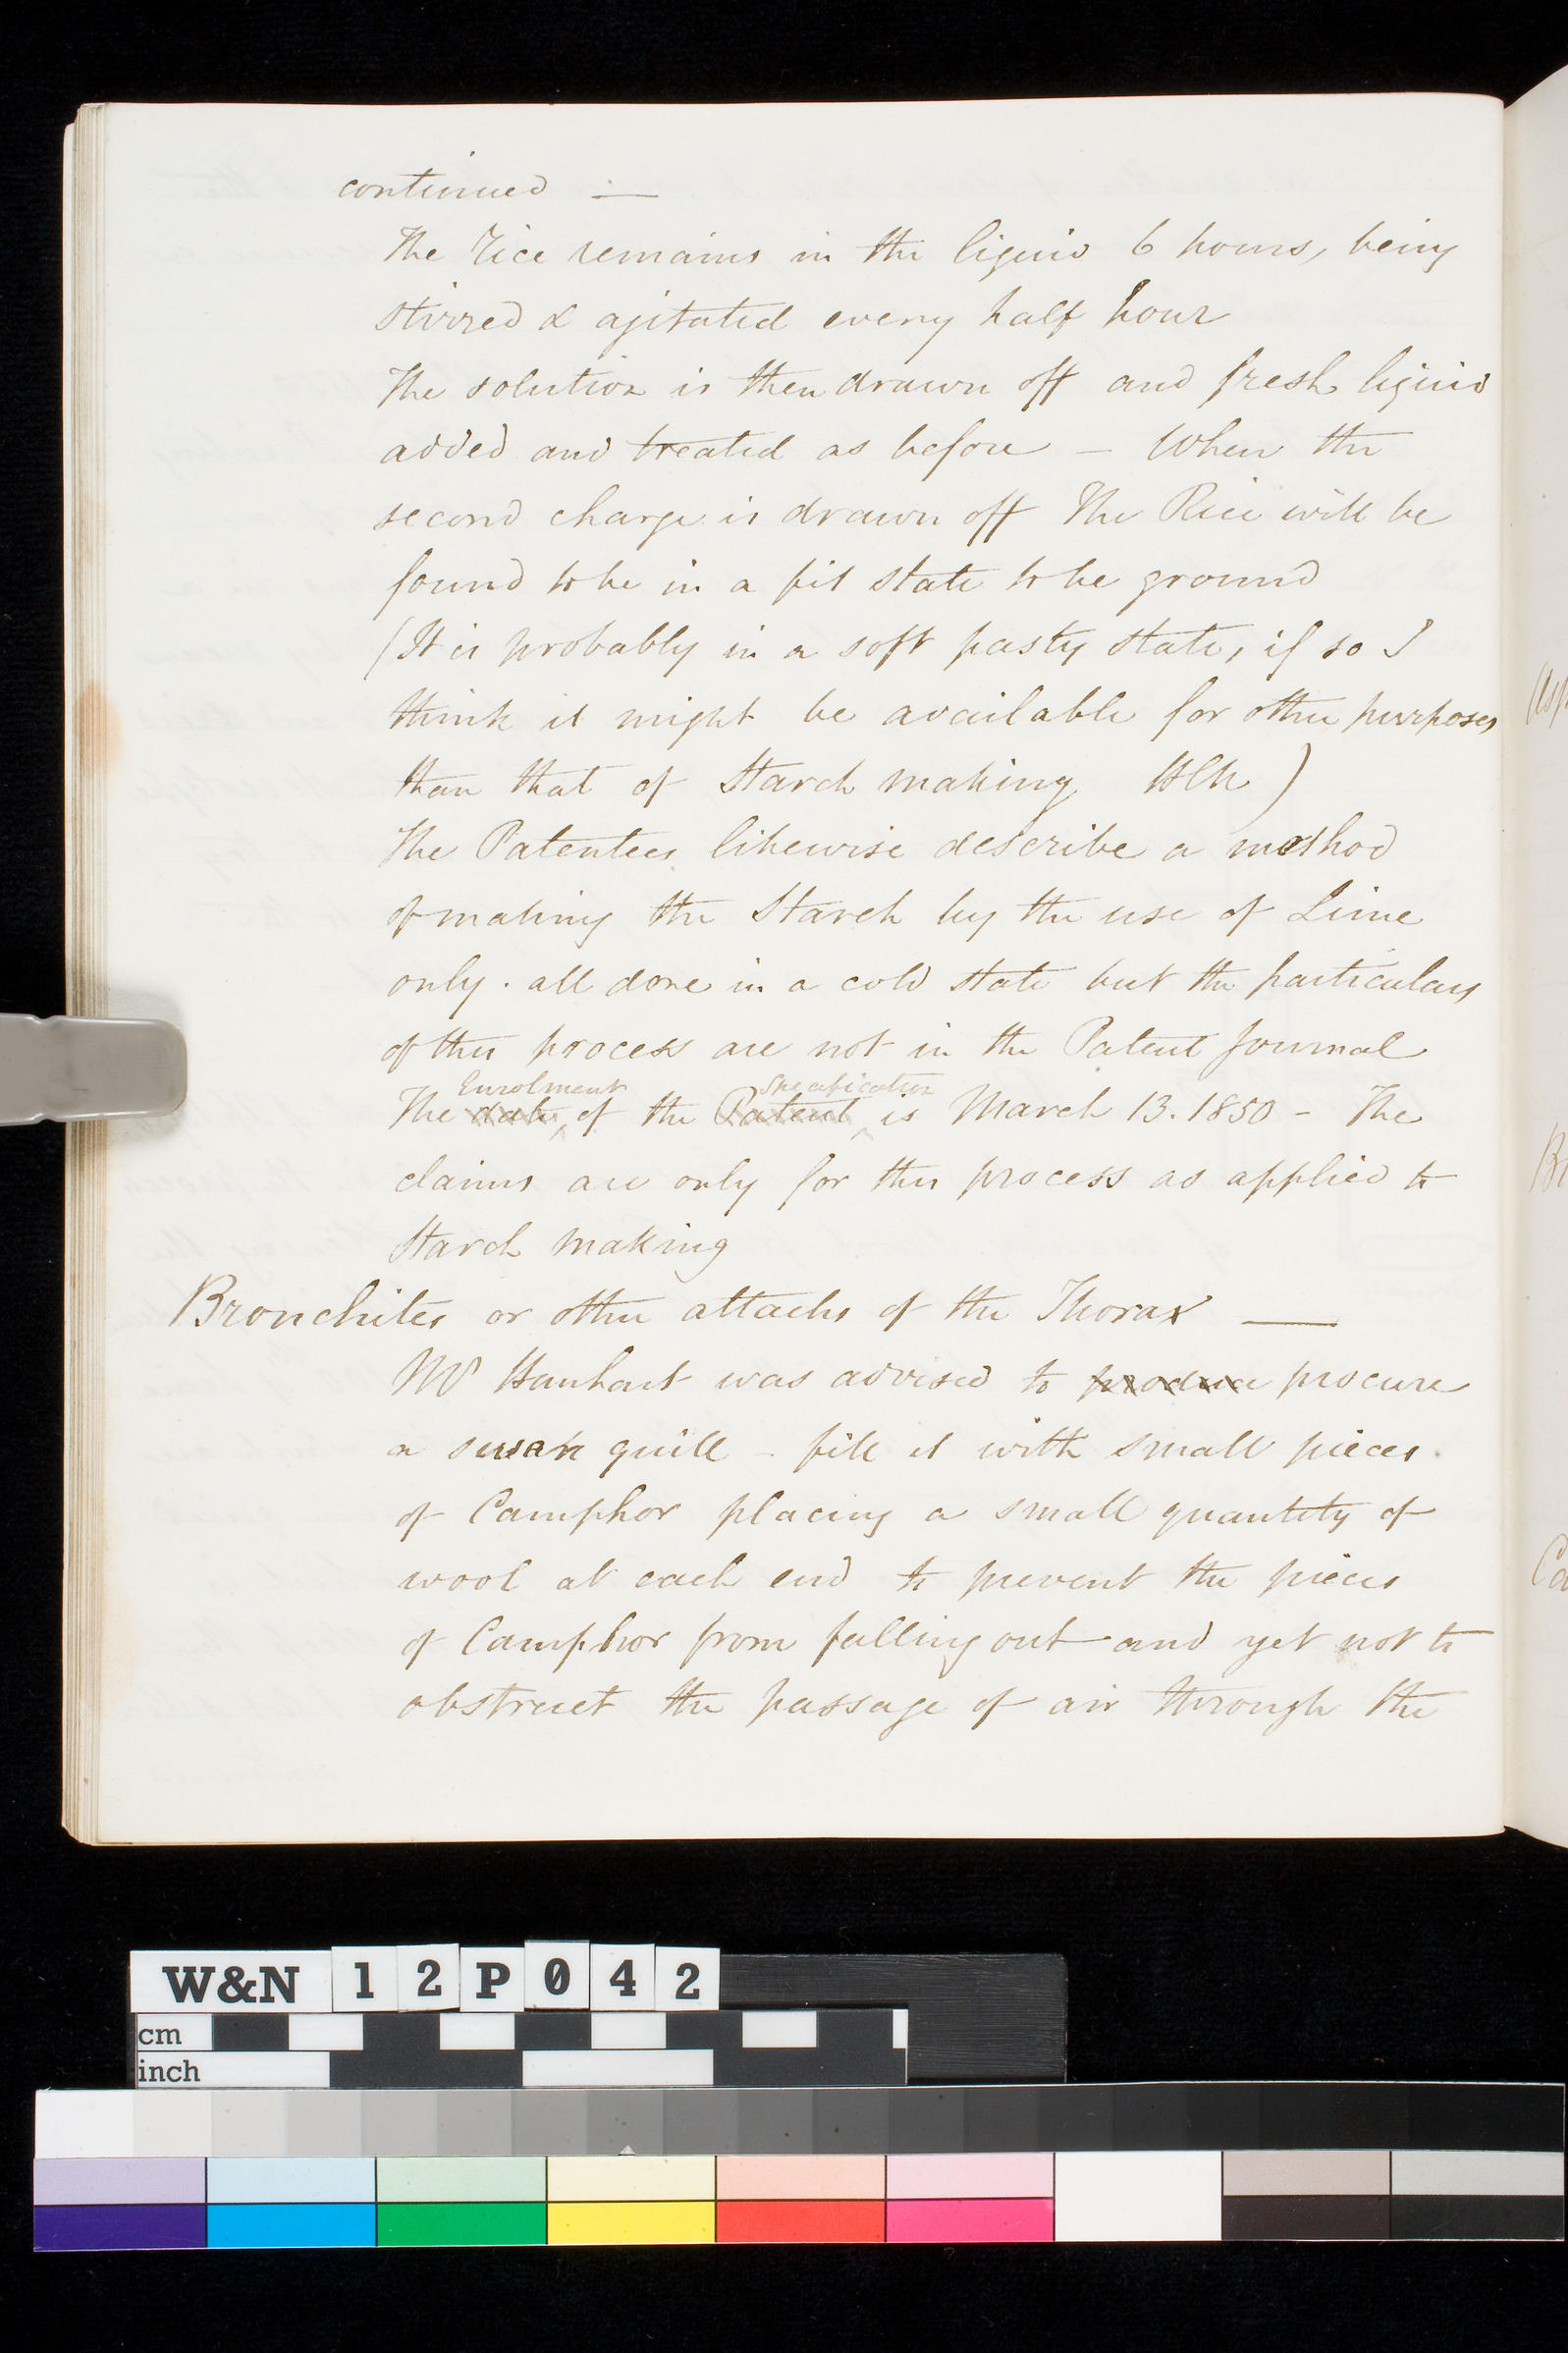 continued —
The Rice remains in the liquid 6 hours, being
stirred & agitated every half hour
The solution is then drawn off and fresh liquid
added and treated as before – When the
second charge is drawn off The Rice will be
found to be in a fit state to be ground
(It is probably in a soft pasty state, if so I
think it might be available for other purposes
than that of Starch making )
The Patentees likewise describe a method
of making the Starch by the use of Lime
only. all done in a cold state but the particulars
of this process are not in the Patent Journal
Enrolment Specification
The date of the Patent is March 13. 1850 – The
claims are only for this process as applied to
Starch making
Bronchites or other attacks of the Thorax —
Mr Hanhart was advised to produce procure
a swan quill – fill it with small pieces
of Camphor placing a small quantity of
wool at each end to prevent the pieces
of Camphor from falling out and yet not to
obstruct the passage of air through the
W&N 12P042
cm
inch